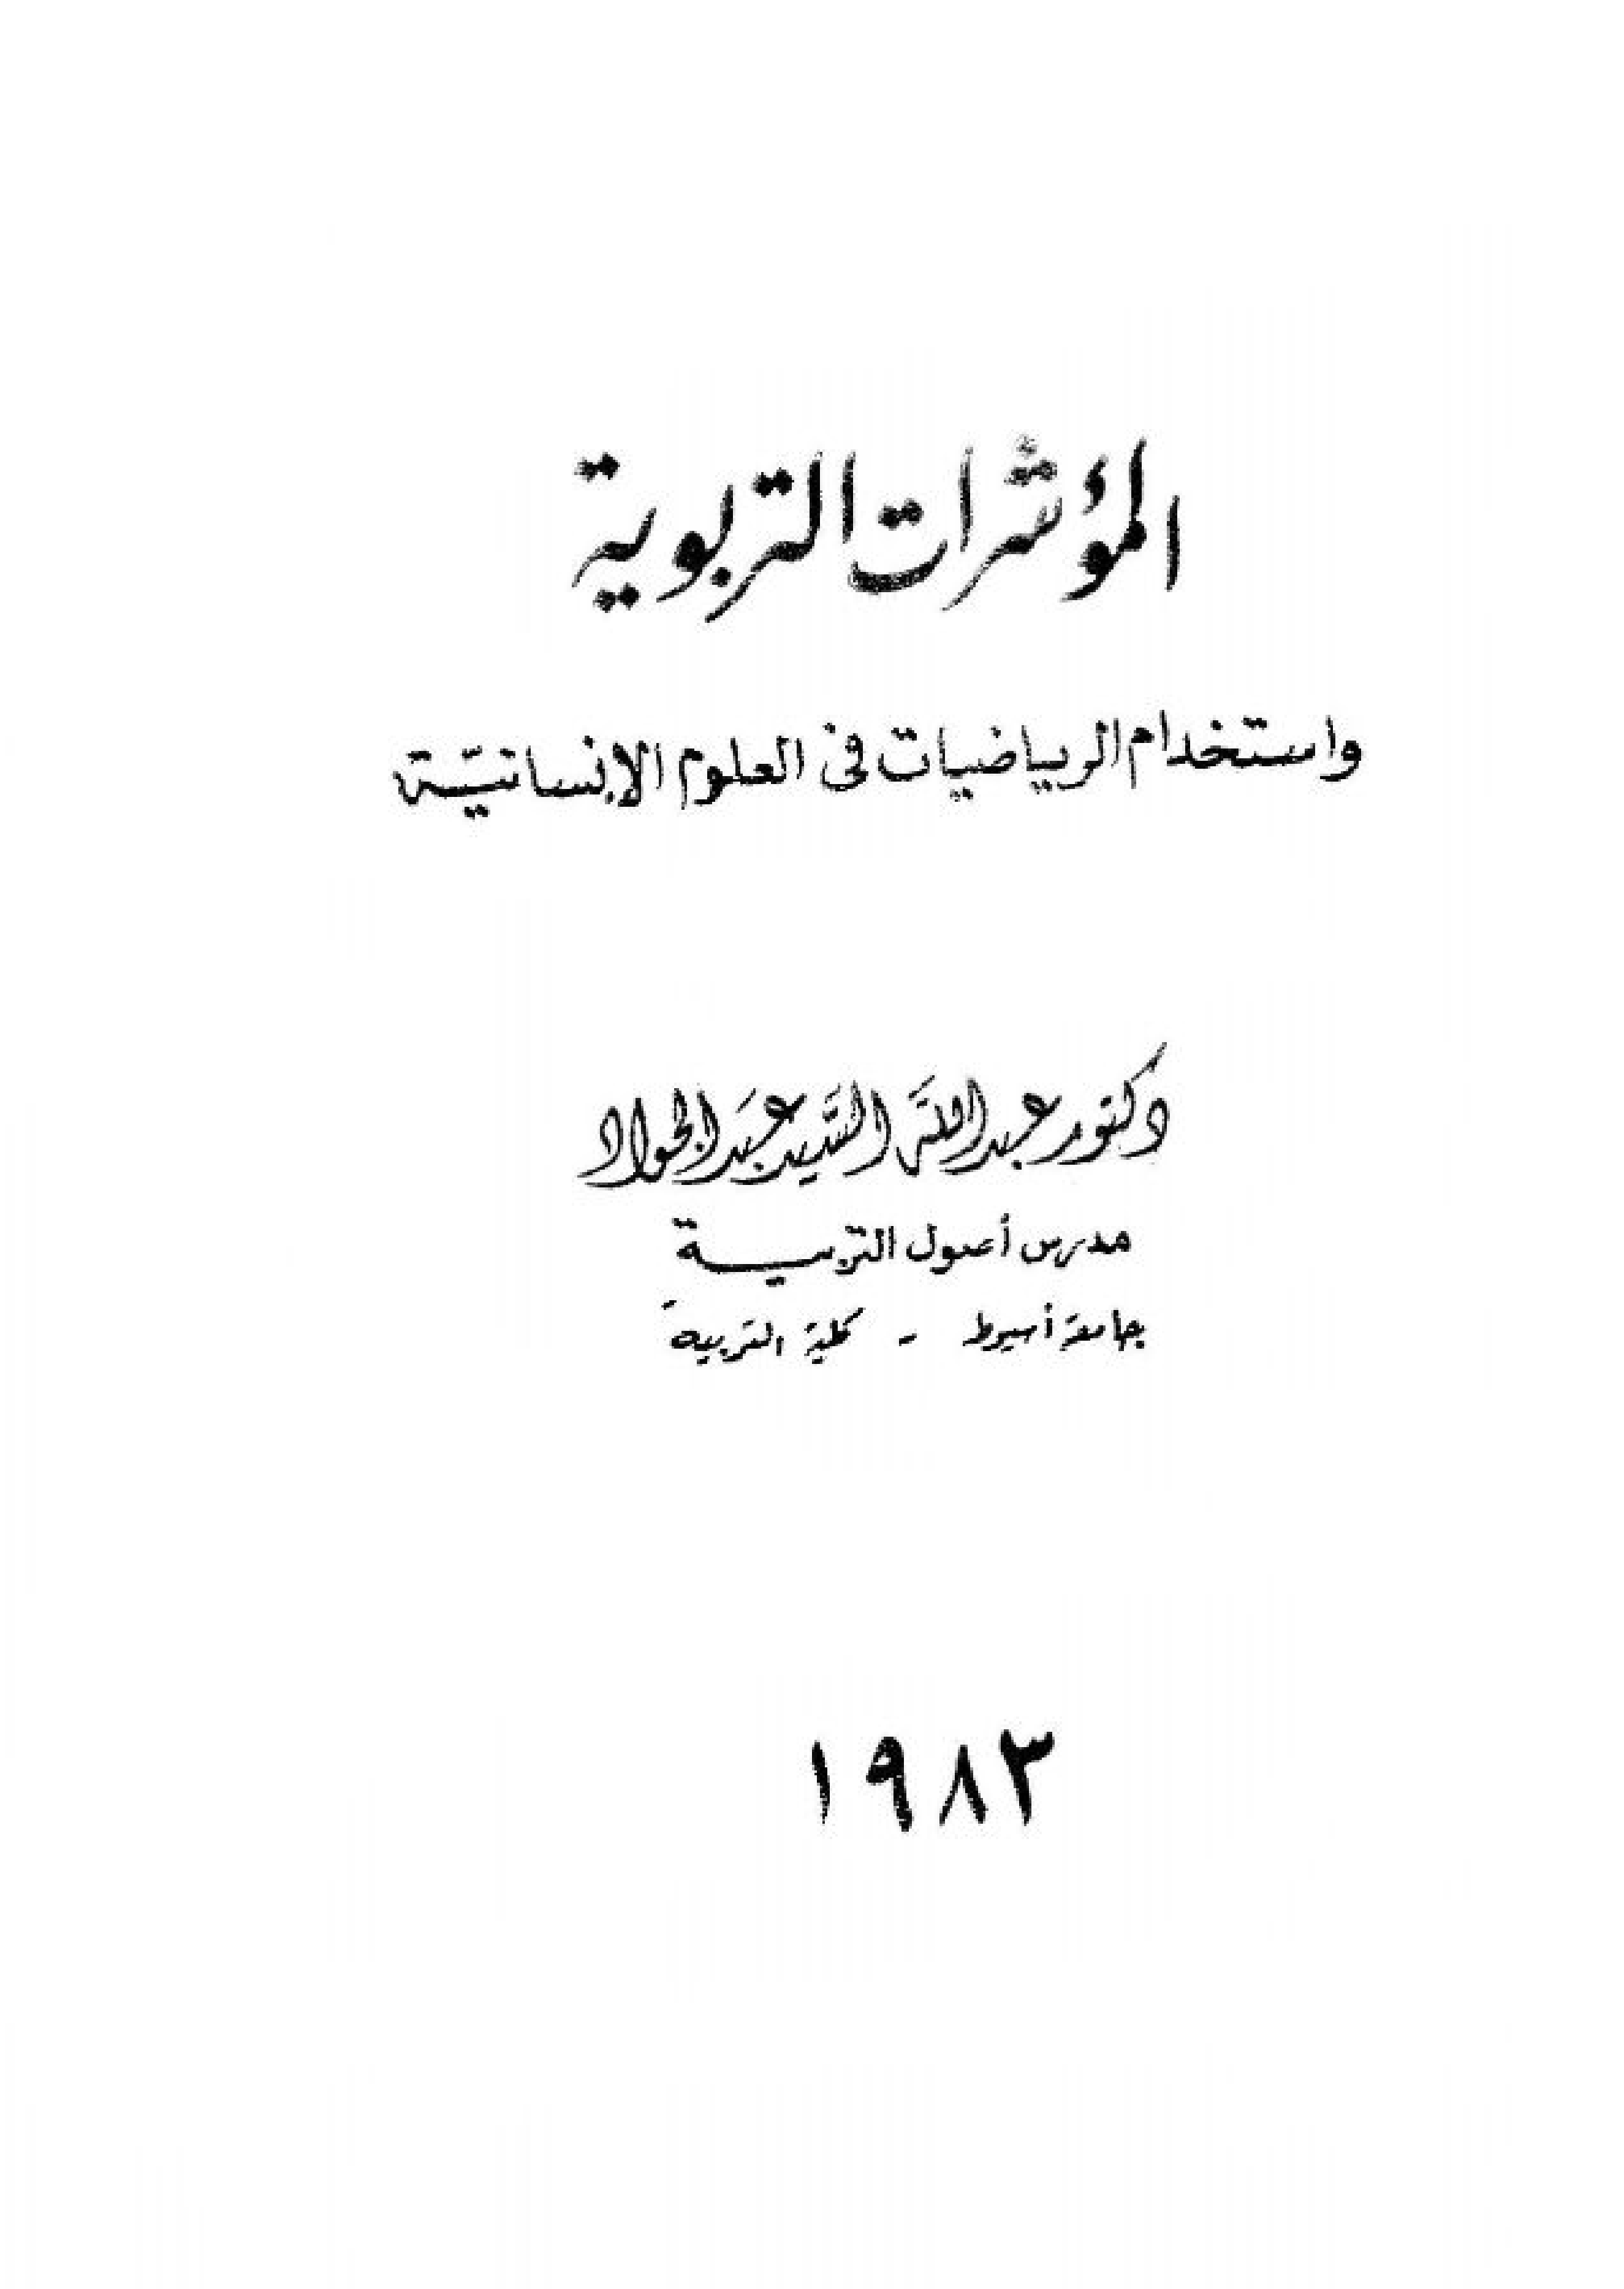 المؤشرات التربوية
واستخدام الرياضيات فى العلوم الإنسانيّة
دكتور عبد الله السّيد عبَد الجواد
مدرس أصول التربية
جامعة أسيوط - كلية التربية
١٩٨٣